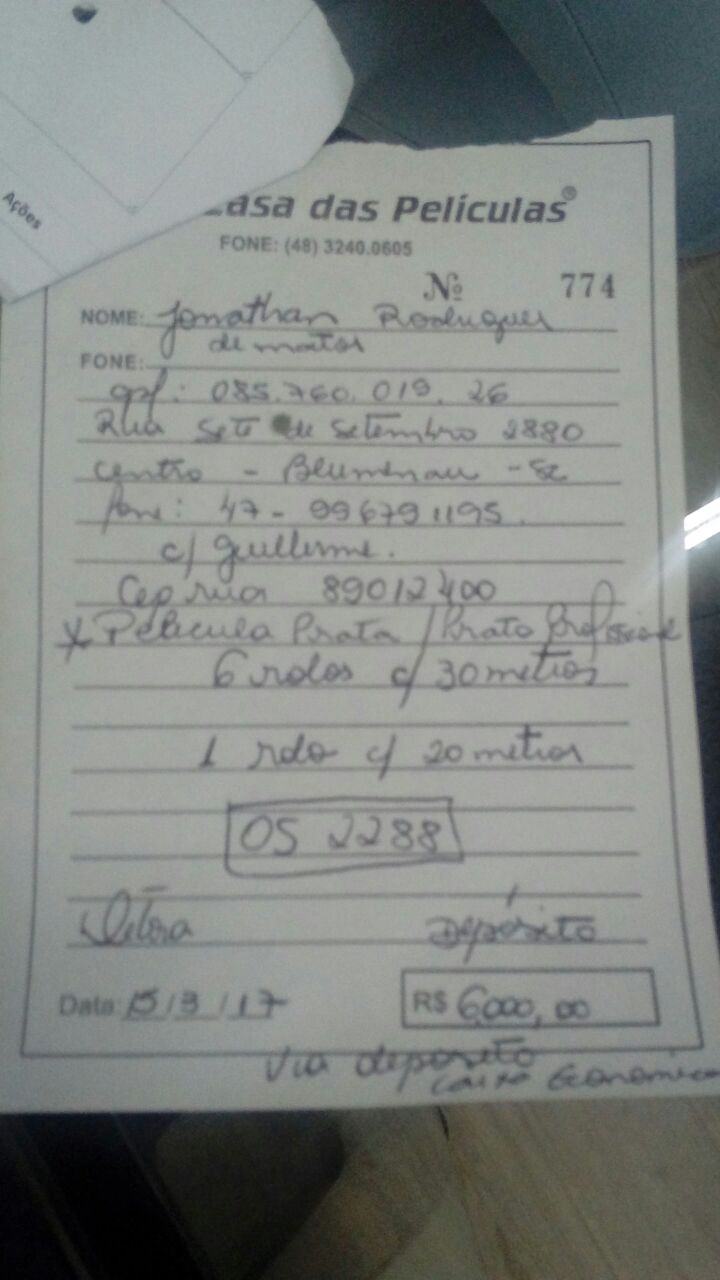 Ações
Casa das Películas®
FONE: (48) 3240.0605
Nº 774
NOME: Jonathan Rodrigues
de matos
FONE:
cpf: 085.760.019.26
Rua Sete de Setembro 2880
centro - Blumenau - SC
fone: 47 - 996791195.
c/ guilherme.
Cep rua 89012400
* Película Prata / Prata Profissional
6 rolos c/ 30 metros
1 rolo c/ 20 metros
OS 2288
Depósito
Data: 15/3/17
R$ 6000,00
Via deposito
Caixa Economica